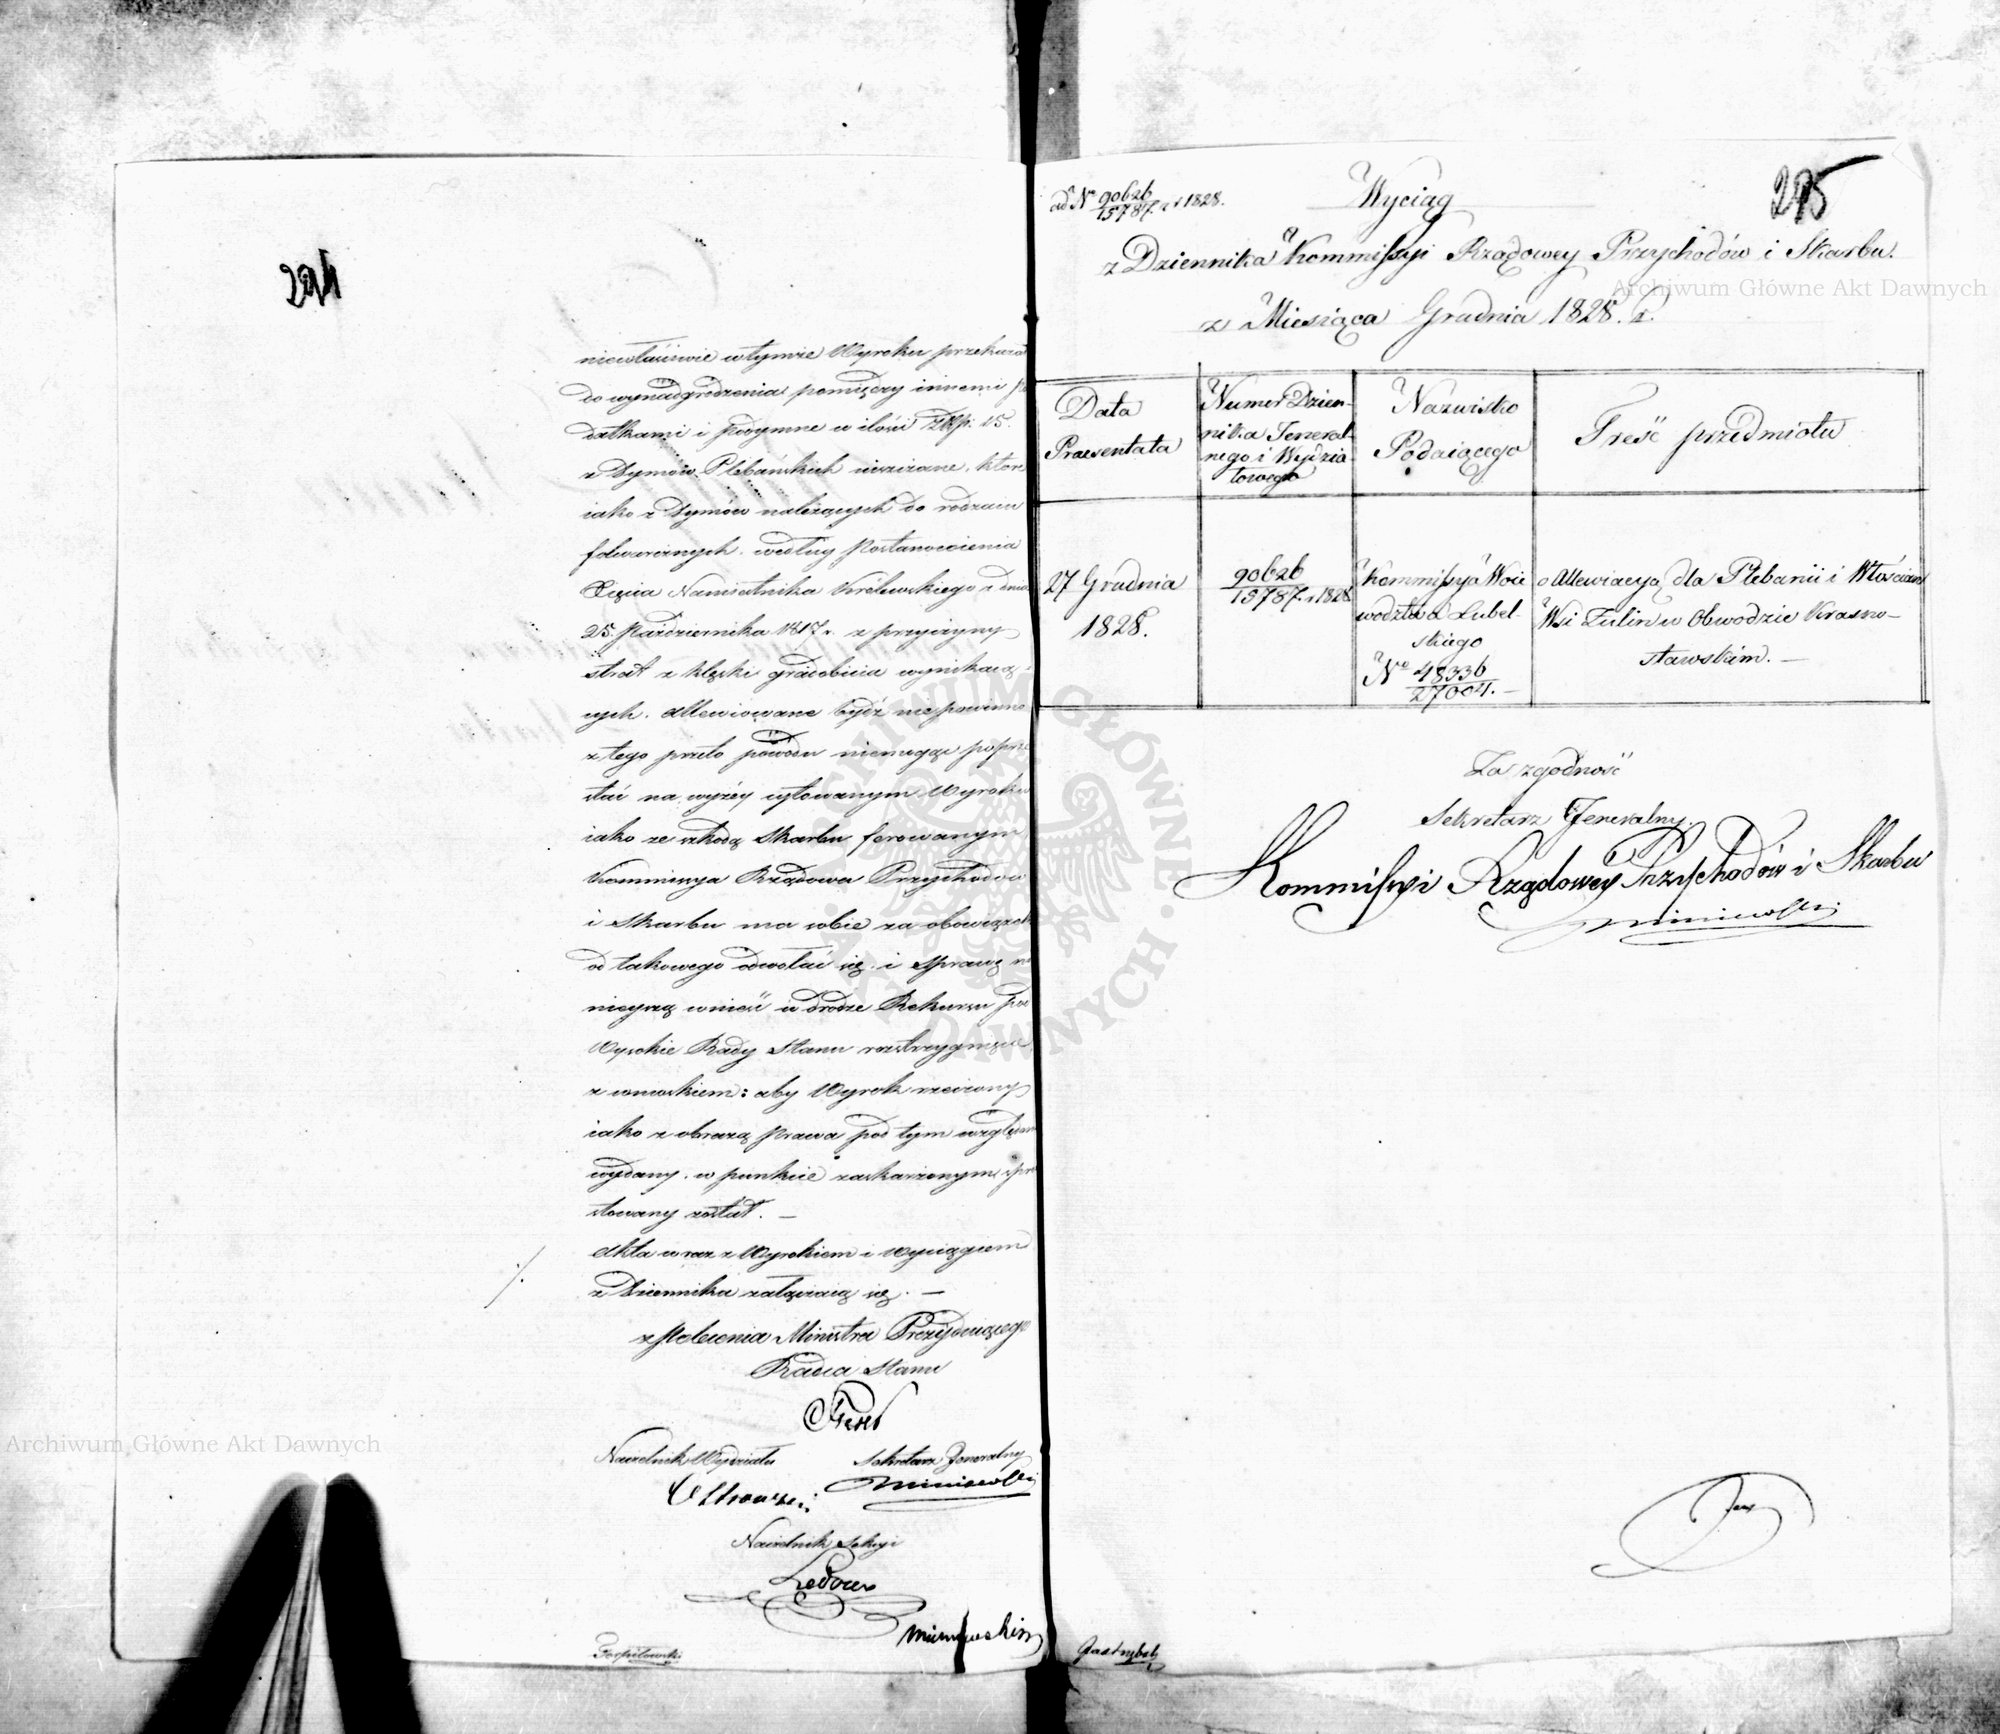 niewłaściwie w tymże Wyroku przekazał
do wynadgrodzenia pomiędzy innemi po
datkami i podymne w ilości Złp. 15.
z Dymów Plebańskich uiszczane, które
iako z Dymów należących do rodzaiu
folwarcznych, według Postanowienia
Xięcia Namiestnika Królewskiego z dnia
25. Października 1817 r. z przyczyny
strat z klęski gradobicia wynikaią-
cych. allewiowane bydź nie powinno
z tego przeto powodu niemogąc poprze
stać na wyżey cytowanym Wyroku
iako ze szkodą Skarbu ferowanym
Kommissya Rządowa Przychodów
i Skarbu ma sobie za obowiązek
od takowego odwołać się i sprawę ni
nieyszą wnieść w drodze Rekursu pod
Wysokie Rady Stanu rozstrzygnięcie
z wnioskiem: aby Wyrok rzeczony
iako z obrazą prawa pod tym względem
wydany w punkcie zaskarżonym spro
stowany został. —
Akta wraz z Wyrokiem i Wyciągiem
z Dziennika załączaią się. —
z Polecenia Ministra Prezyduiącego
Radca Stanu
Naczelnik Wydziału Sekretarz Jeneralny
Naczelnik Sekcyi
ad No 90626/15787. r 1828.
Wyciąg
295
z Dziennika Kommissyi Rządowey Przychodów i Skarbu.
z Miesiąca Grudnia 1828. r.
Data
Praesentata
Numer Dzien-
nika Jeneral-
nego i Wydzia-
łowego
Nazwisko
Podaiącego
Treść przedmiotu
27 Grudnia
1828.
90626/15787. r 1828
Kommissya Woie
wodztwa Lubel-
skiego
No 48336/27004. —
o Allewiacyą dla Plebanii i Włościan
Wsi Tulin w Obwodzie Krasno-
stawskim. —
Za zgodność
Sekretarz Jeneralny.
Kommissyi Rządowey Przychodów i Skarbu
Archiwum Główne Akt Dawnych
Archiwum Główne Akt Dawnych
ARCHIWUM GŁÓWNE AKT DAWNYCH